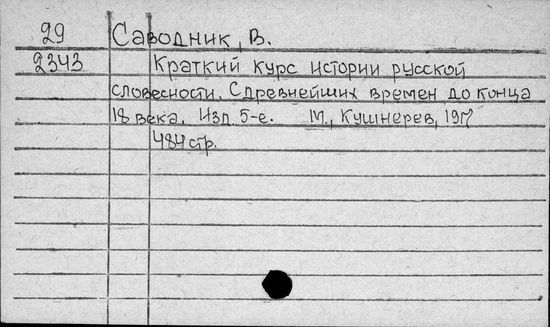 29 Саводник, В.
2343 Краткий курс истории русской
словесности. С древнейших времен до конца
18 века. Изд. 5-е. М., Кушнерев,
484 стр.